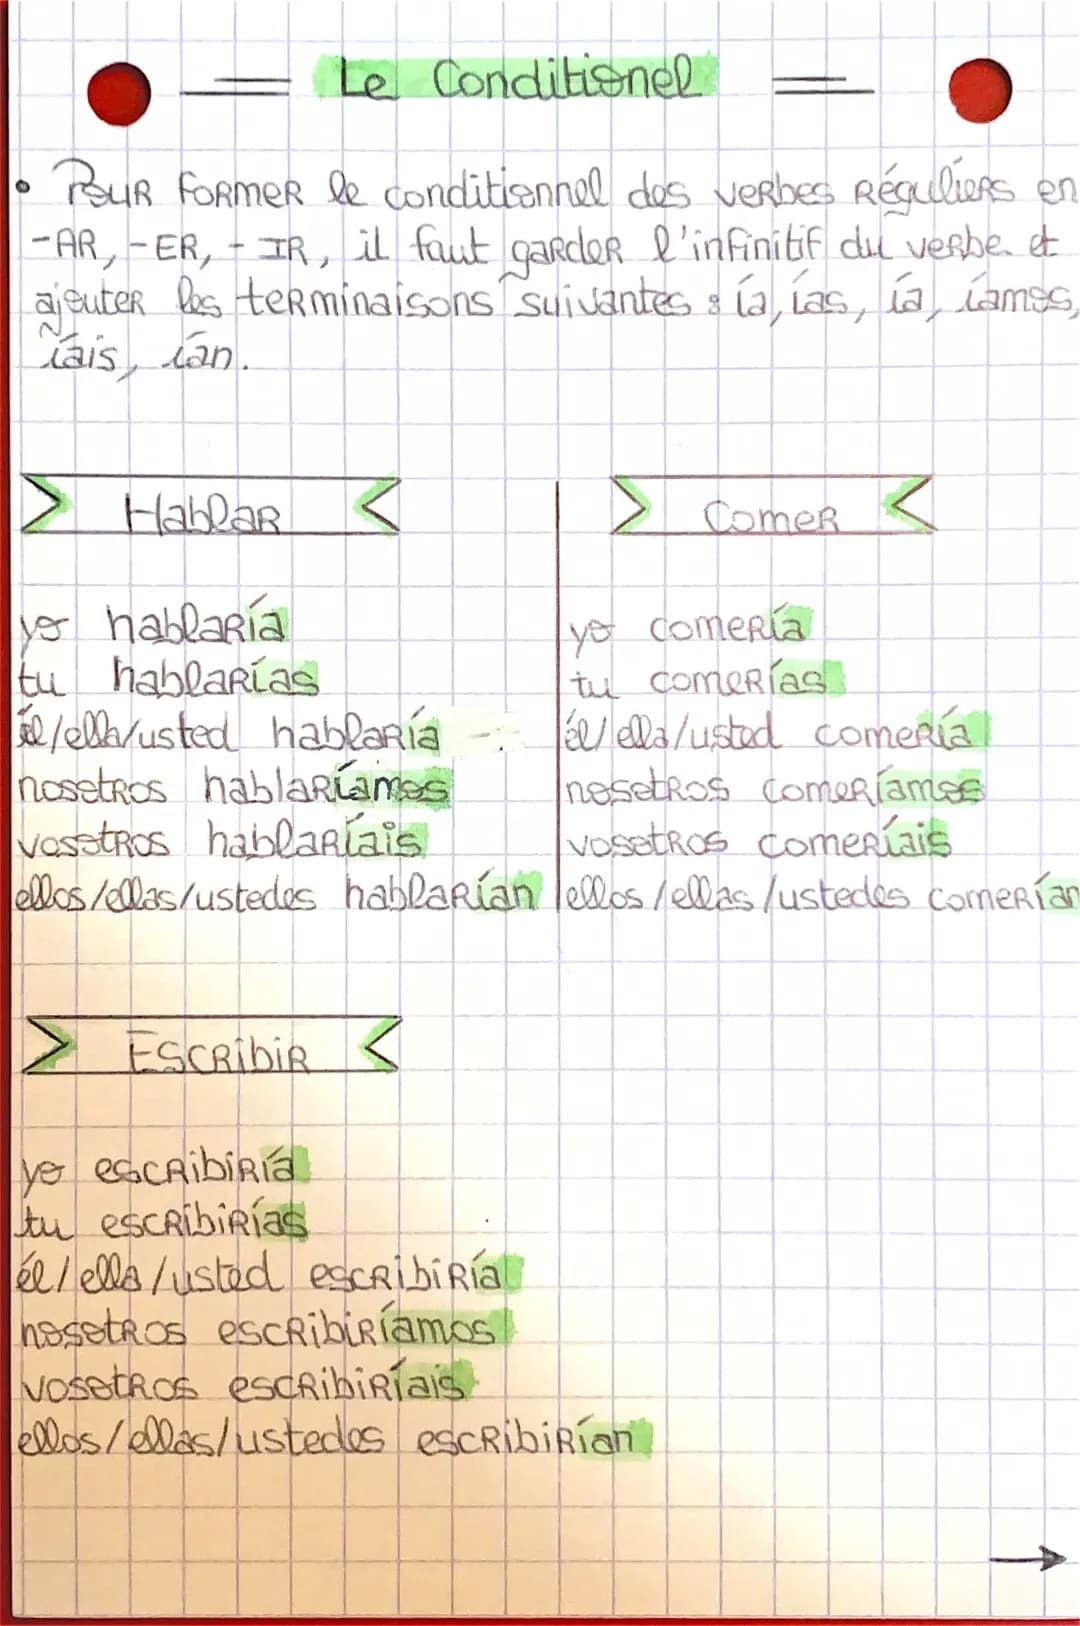 Le Conditionel
• Pour former le conditionnel des verbes réguliers en
-AR, -ER, -IR, il faut garder l'infinitif du verbe et
ajouter les terminaisons suivantes : ía, ías, ía, íamos,
íais, ían.
Hablar
yo hablaría
tu hablarías
él/ella/usted hablaría
nosotros hablaríamos
vosotros hablaríais
ellos/ellas/ustedes hablarían
Comer
yo comería
tu comerías
él/ella/usted comería
nosotros comeríamos
vosotros comeríais
ellos/ellas/ustedes comerían
Escribir
yo escribiría
tu escribirías
él/ella/usted escribiría
nosotros escribiríamos
vosotros escribiríais
ellos/ellas/ustedes escribirían